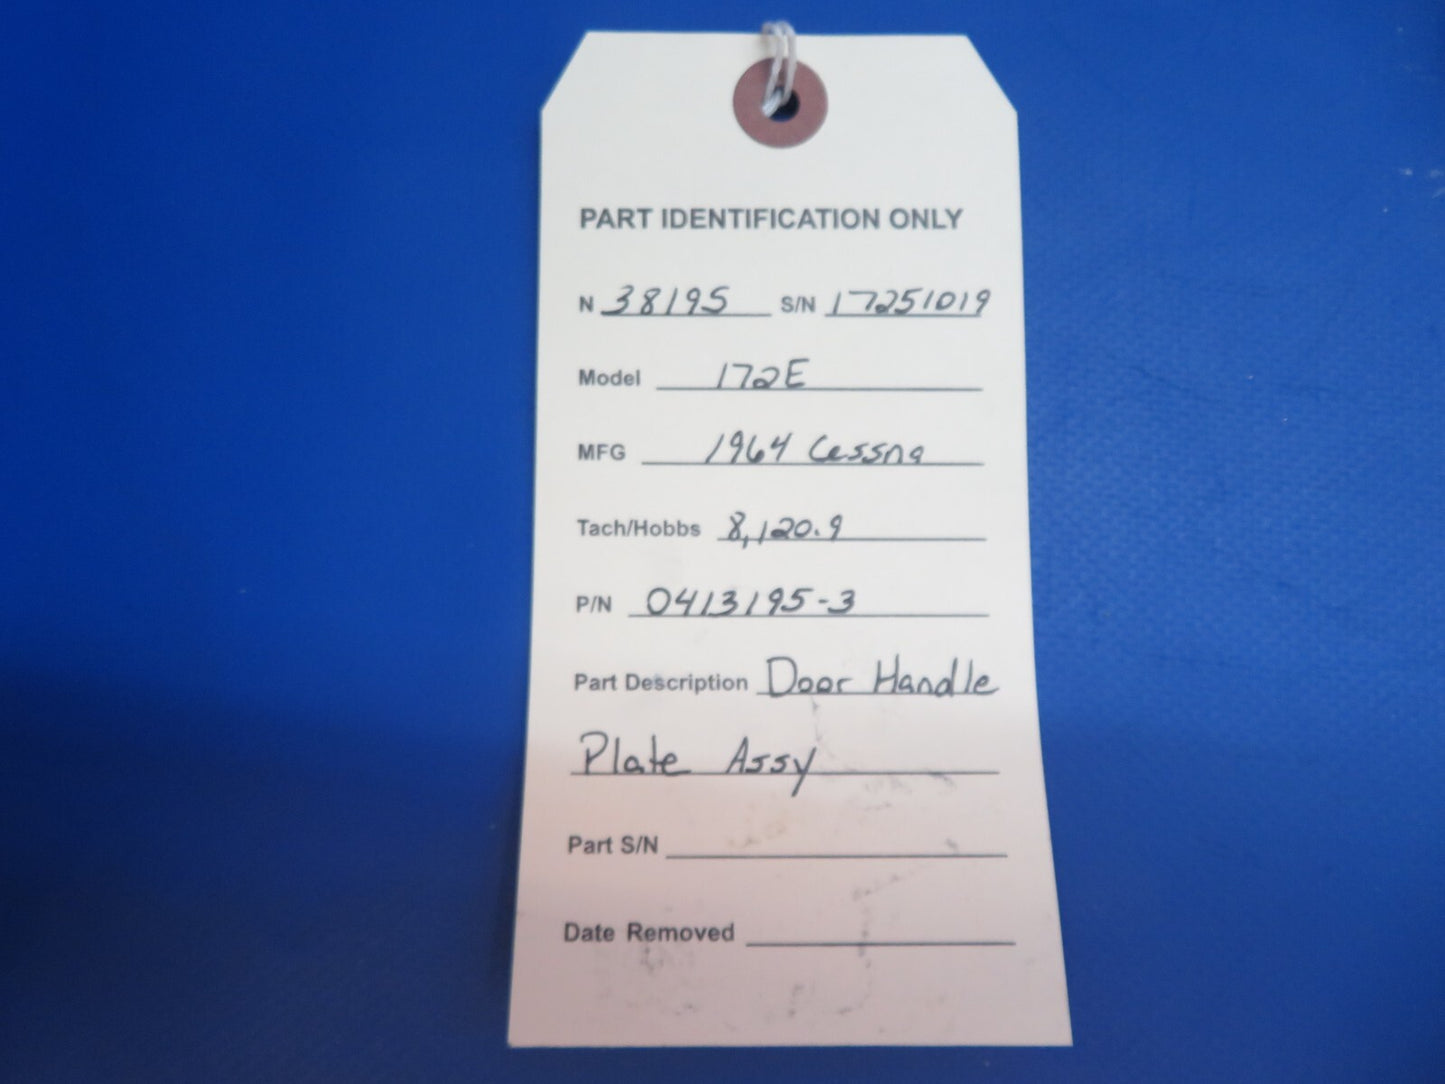 PART IDENTIFICATION ONLY
N 38195 S/N 17251019
Model 172E
MFG 1964 Cessna
Tach/Hobbs 8,120.9
P/N 0413195-3
Part Description Door Handle
Plate Assy
Part S/N
Date Removed